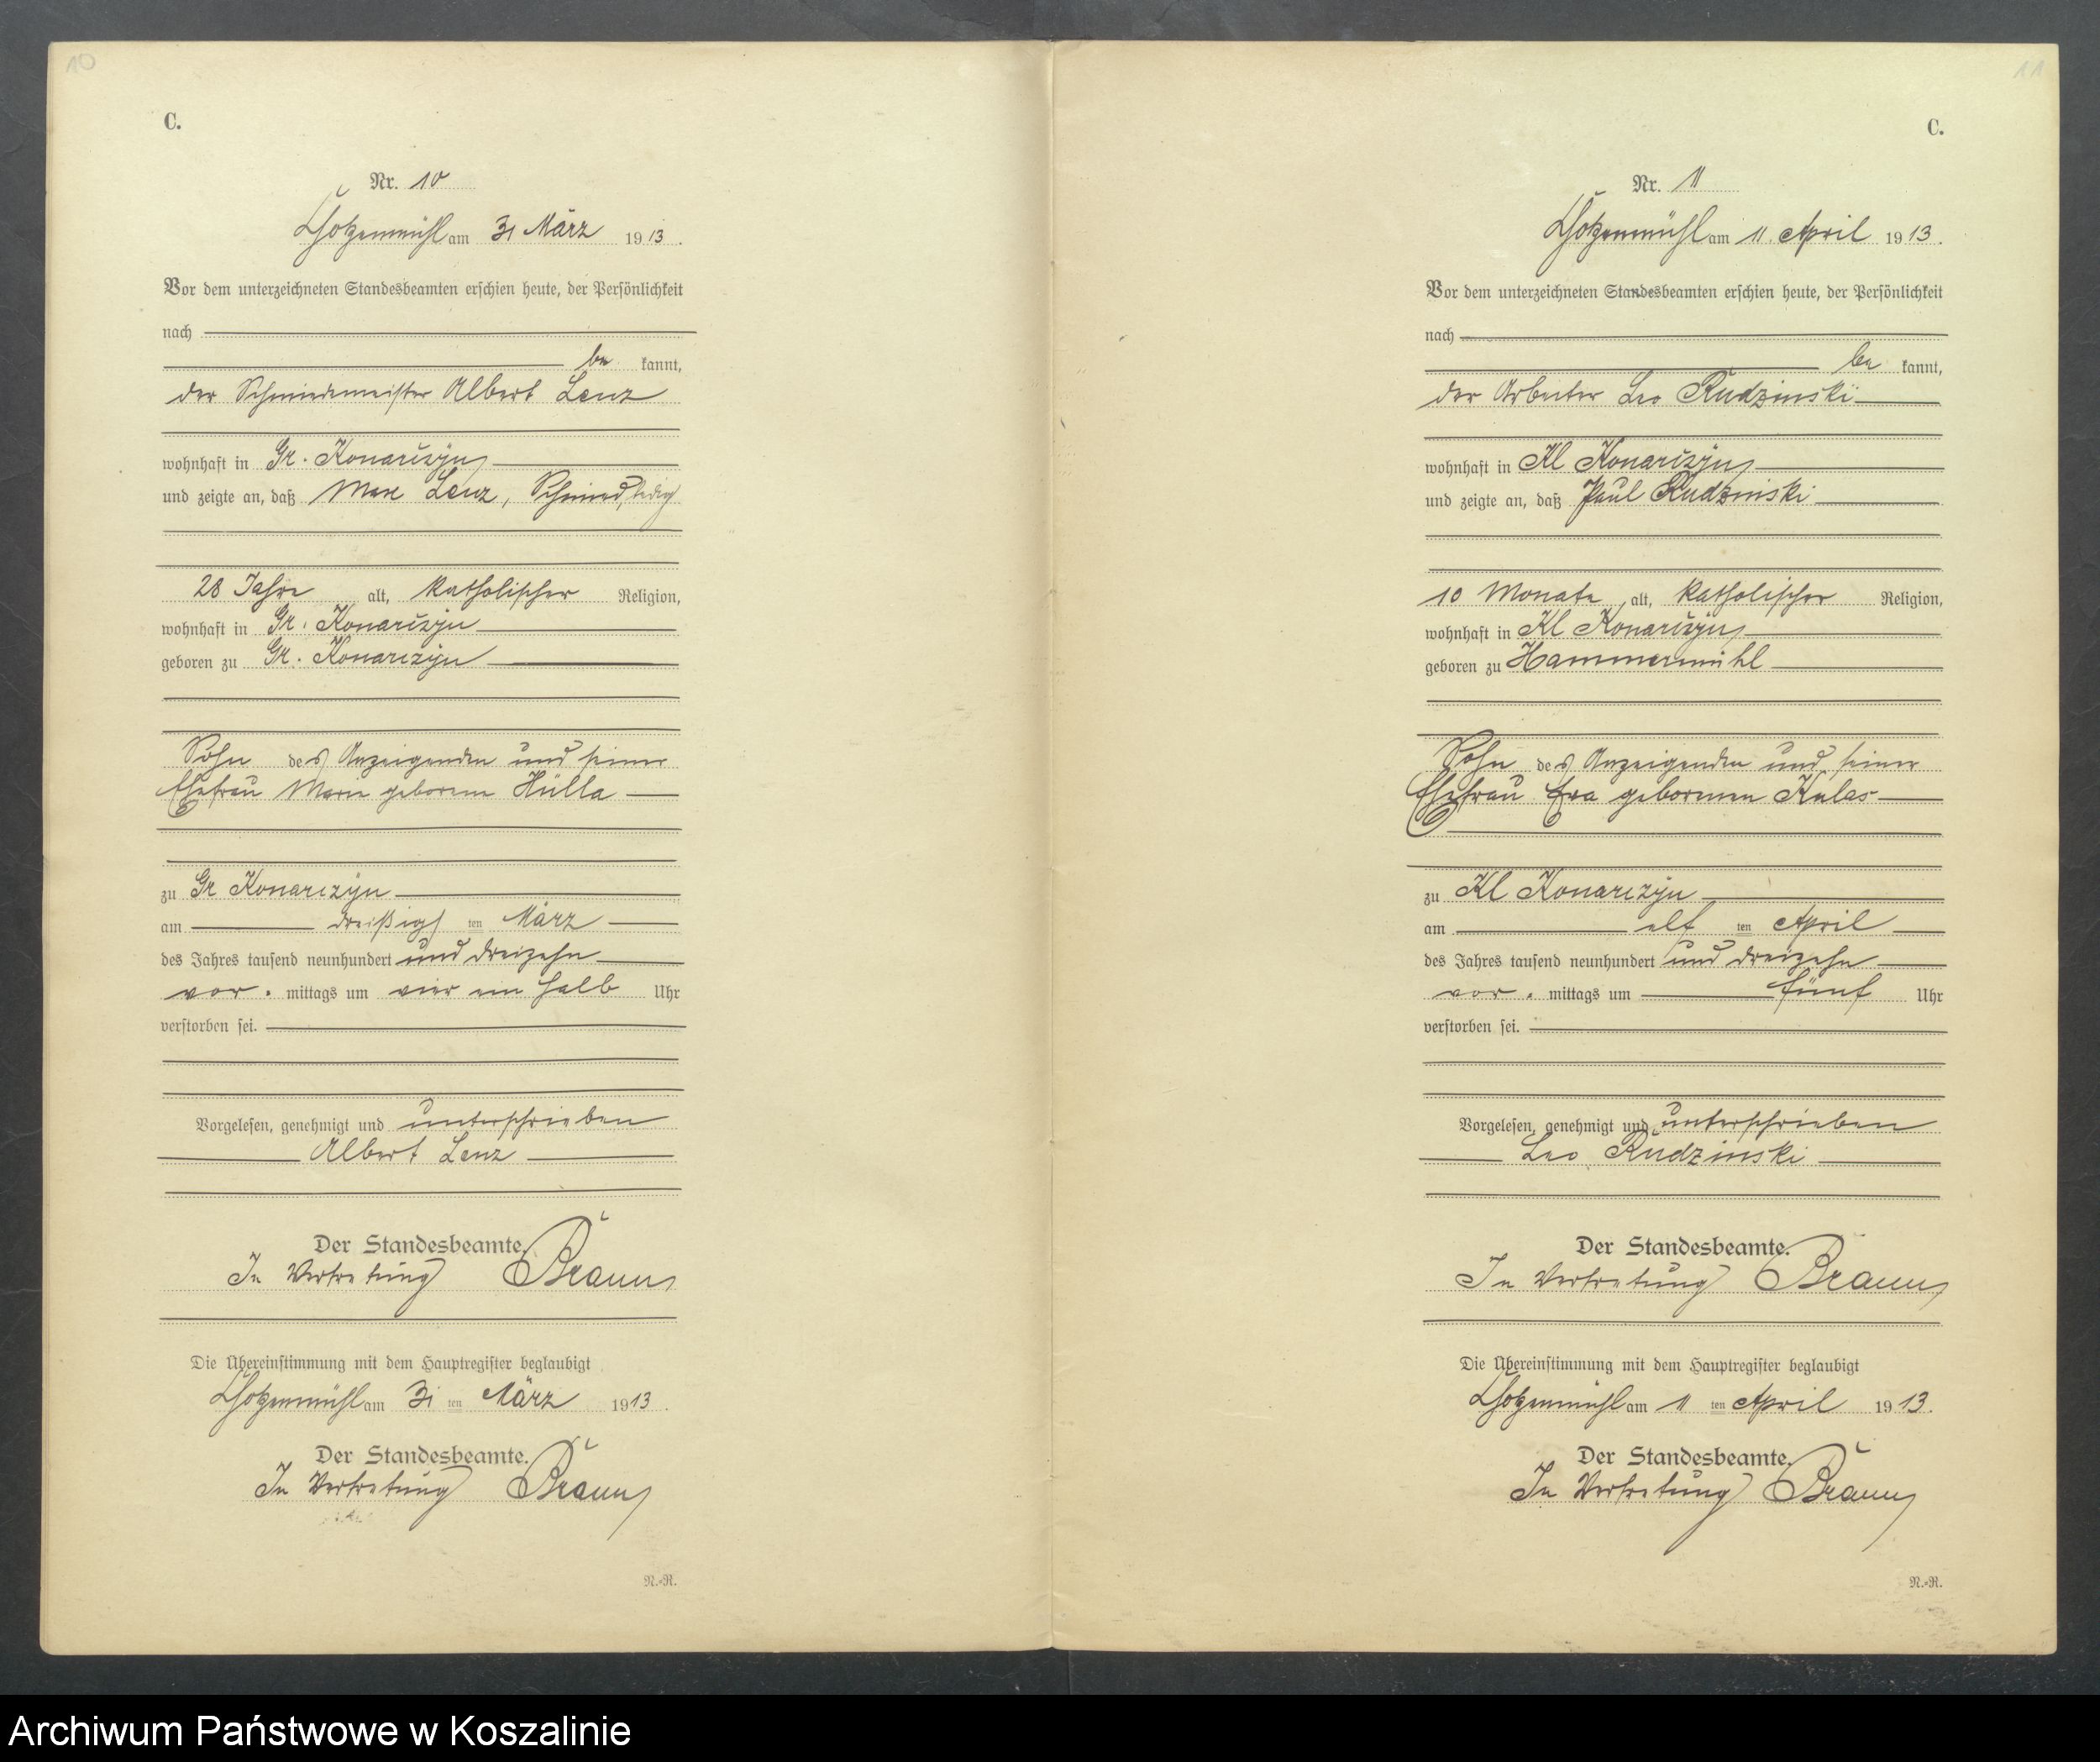 10
C.
Nr. 10
Chotzenmühl am 31 März 1913.
Vor dem unterzeichneten Standesbeamten erschien heute, der Persönlichkeit
nach
be kannt,
der Schmiedemeister Albert Lenz
wohnhaft in Gr. Konarczyn
und zeigte an, daß Max Lenz, Schmied, ledig
28 Jahre alt, katholischer Religion,
wohnhaft in Gr. Konarczyn
geboren zu Gr. Konarczyn
Sohn des Anzeigenden und seiner
Ehefrau Marie geborene Hülla
zu Gr Konarczyn
am dreißigs ten März
des Jahres tausend neunhundert und dreizehn
vor. mittags um vier ein halb Uhr
verstorben sei.
Vorgelesen, genehmigt und unterschrieben
Albert Lenz
Der Standesbeamte.
In Vertretung Braun
Die Übereinstimmung mit dem Hauptregister beglaubigt
Chotzenmühl am 31 ten März 1913.
Der Standesbeamte.
In Vertretung Braun
N.-R.
11
C.
Nr. 11
Chotzenmühl am 11. April 1913.
Vor dem unterzeichneten Standesbeamten erschien heute, der Persönlichkeit
nach
be kannt,
der Arbeiter Leo Rudzinski
wohnhaft in Kl Konarczyn
und zeigte an, daß Paul Rudzinski
10 Monate alt, katholischer Religion,
wohnhaft in Kl Konarczyn
geboren zu Hammermühl
Sohn des Anzeigenden und seiner
Ehefrau Eva geborenen Kulas
zu Kl Konarczyn
am elf ten April
des Jahres tausend neunhundert und dreizehn
vor. mittags um fünf Uhr
verstorben sei.
Vorgelesen, genehmigt und unterschrieben
Leo Rudzinski
Der Standesbeamte.
In Vertretung Braun
Die Übereinstimmung mit dem Hauptregister beglaubigt
Chotzenmühl am 11 ten April 1913.
Der Standesbeamte.
In Vertretung Braun
N.-R.
Archiwum Państwowe w Koszalinie